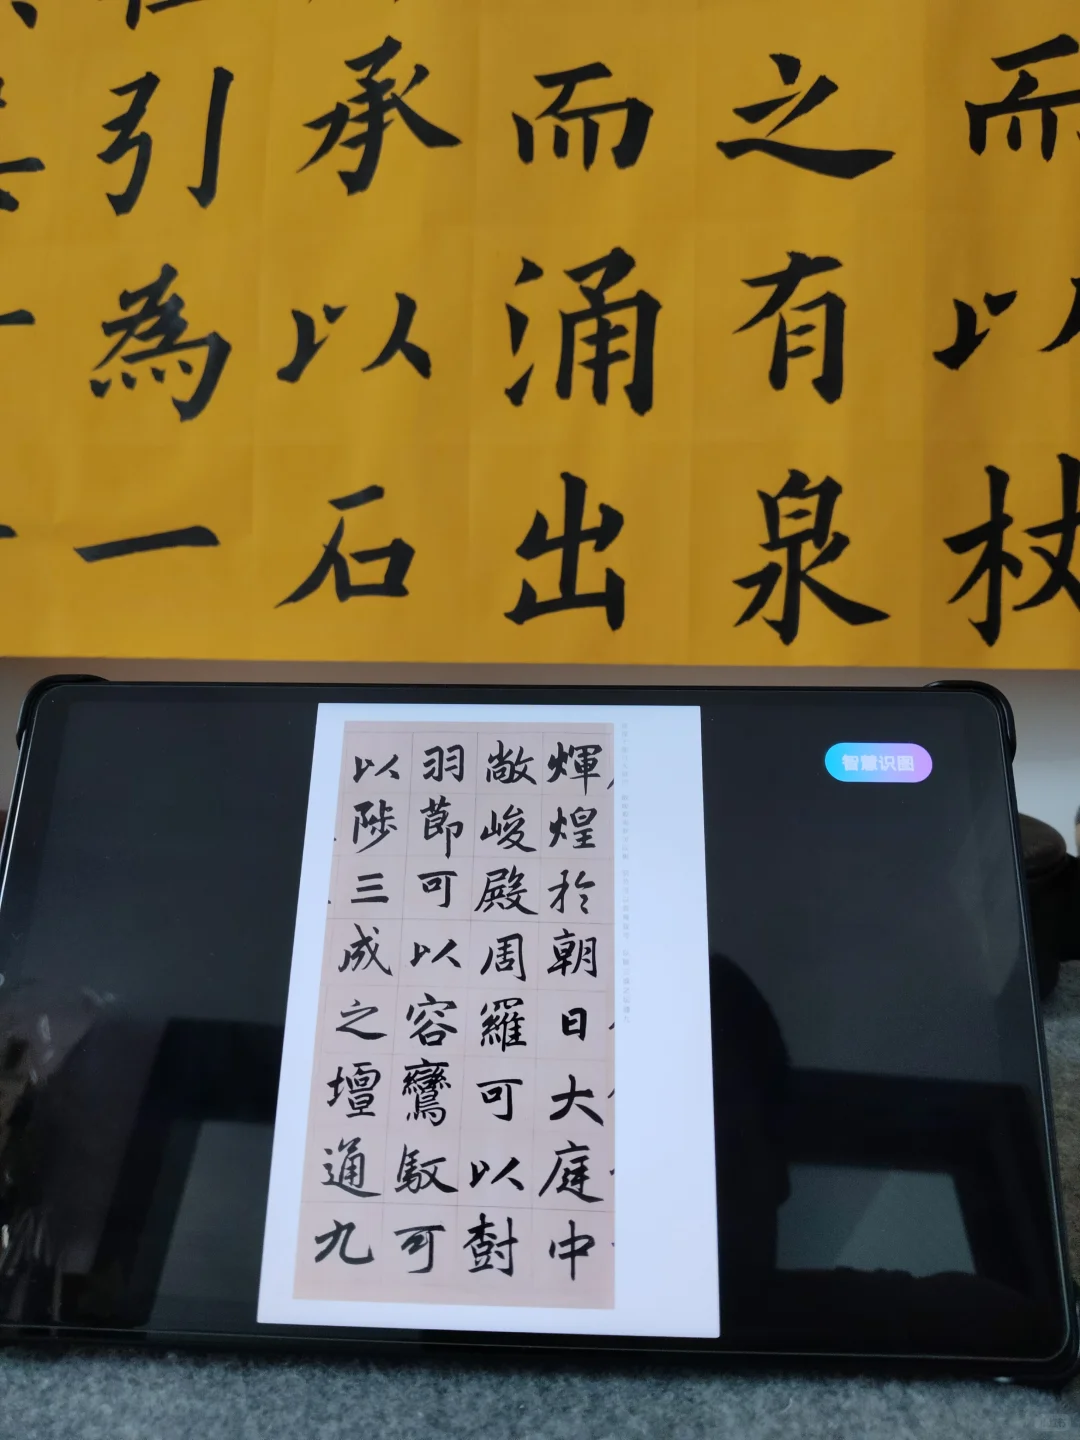 而以杖
之有泉
而涌出
承以石
引為一
智慧识图
輝煌於朝日大庭中
敞峻殿周羅可以樹
羽節可以容鸞馭可
以陟三成之壇通九